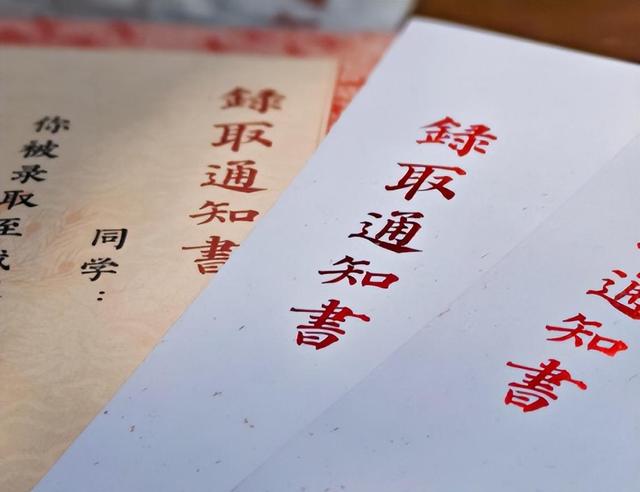 錄取通知書
同学：
你被录取至
錄取通知書
通知書